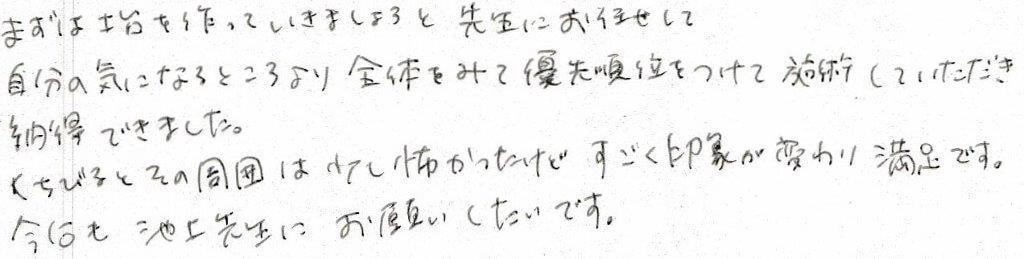 まずは土台を作っていきましょうと 先生にお任せして
自分の気になるところより 全体をみて優先順位をつけて 施術していただき
納得できました。
くちびるとその周囲は少し怖かったけど すごく印象が変わり 満足です。
今後も 池上先生に お願いしたいです。